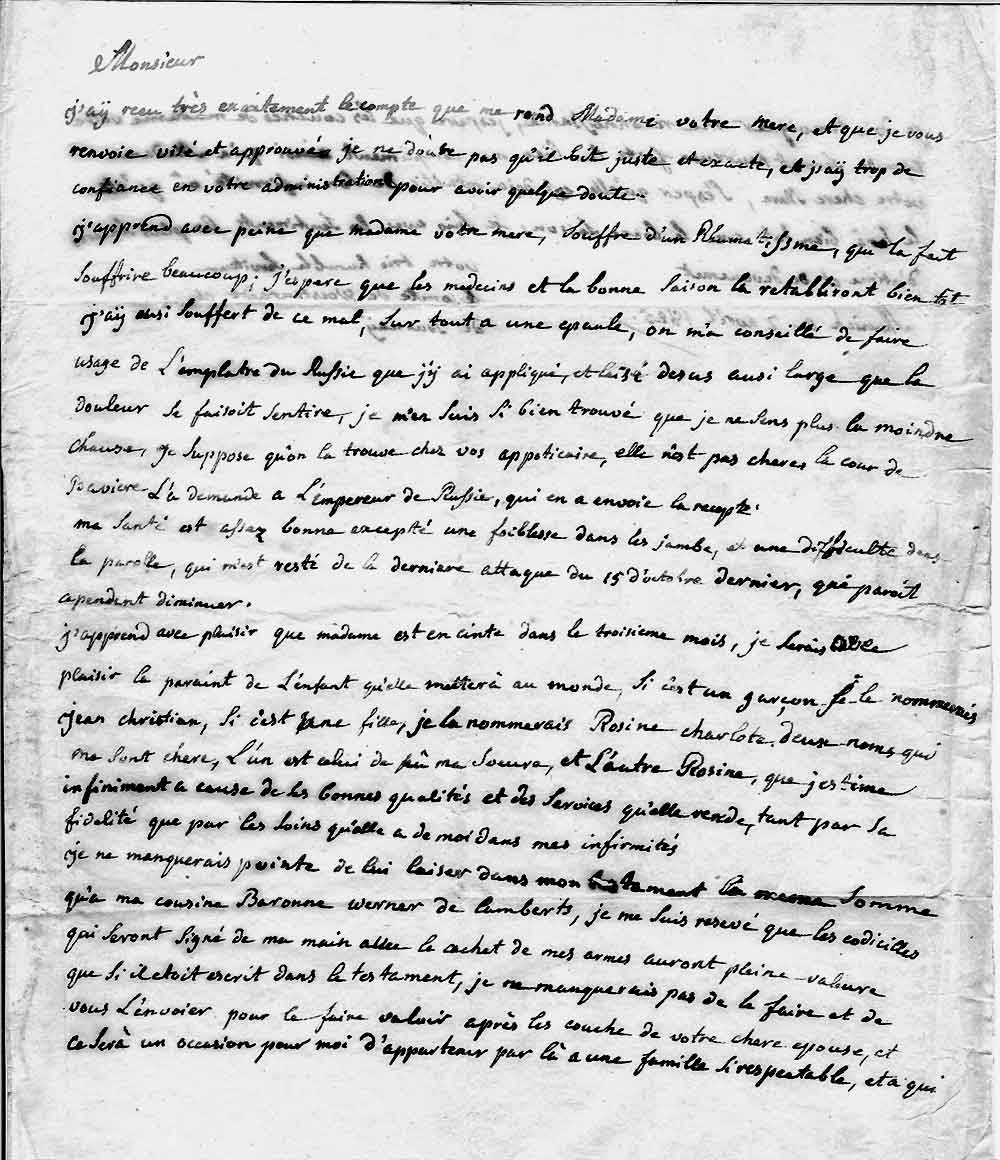 Monsieur
j'aÿ recu très exaitement le compte que me rend Madame votre mere, et que je vous
renvoie visé et approuvé je ne doute pas qu'il soit juste et exacte, et j'aÿ trop de
confiance en votre administration pour avoir quelque doute.
j'apprend avec peine que madame votre mere, souffre d'un Rhumatissme, qui la fait
souffrire beaucoup; j'espere que les medecins et la bonne saison la retabliront bien tot
j'aÿ ausi souffert de ce mal, sur tout a une epaule, on m'a conseillé de faire
usage de L'emplatre du Russie que j'ÿ ai appliqué, et laisé desus ausi large que la
douleur se faisoit sentire, je m'en suis si bien trouvé que je ne sens plus la moindre
chause, je suppose qu'on la trouve chez vos appoticaire, elle n'est pas cheres la cour de
Baviere L'a demande a L'empereur de Russie, qui en a envoie la recepte.
ma santé est assez bonne excepté une foiblesse dans les jambe, et une difficulte dans
la parolle, qui m'est resté de la derniere attaque du 15 d'octobre dernier, qui paroit
cependent diminuer.
j'apprend avec plaisir que madame est en cinte dans le troisieme mois, je serais avec
plaisir le paraint de L'enfant qu'elle metterà au monde, si c'est un garçon je le nommerais
jean christian, si c'est une fille, je la nommerais Rosine charlote. deux noms qui
me sont chere, L'un est celui de fû ma soeure, et L'autre Rosine, que j'estime
infiniment a cause de ses bonnes qualités et des services qu'elle rende, tant par sa
fidelité que par les soins qu'elle a de moi dans mes infirmités
je ne manquerais pointe de lui laiser dans mon testament la meme somme
qu'a ma cousine Baronne werner de Lamberts, je me suis resevé que les codicilles
qui seront signé de ma main avec le cachet de mes armes auront pleine valeure
que si il etoit escrit dans le testament, je ne manquerais pas de le faire et de
vous L'envoier pour le faire valoir après les couche de votre chere epouse, et
ce serà un occasion pour moi d'appartenir par là a une famille si respectable, et a qui